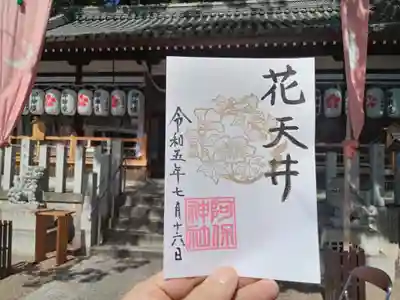 花天井
令和五年七月十六日
阿保
神社